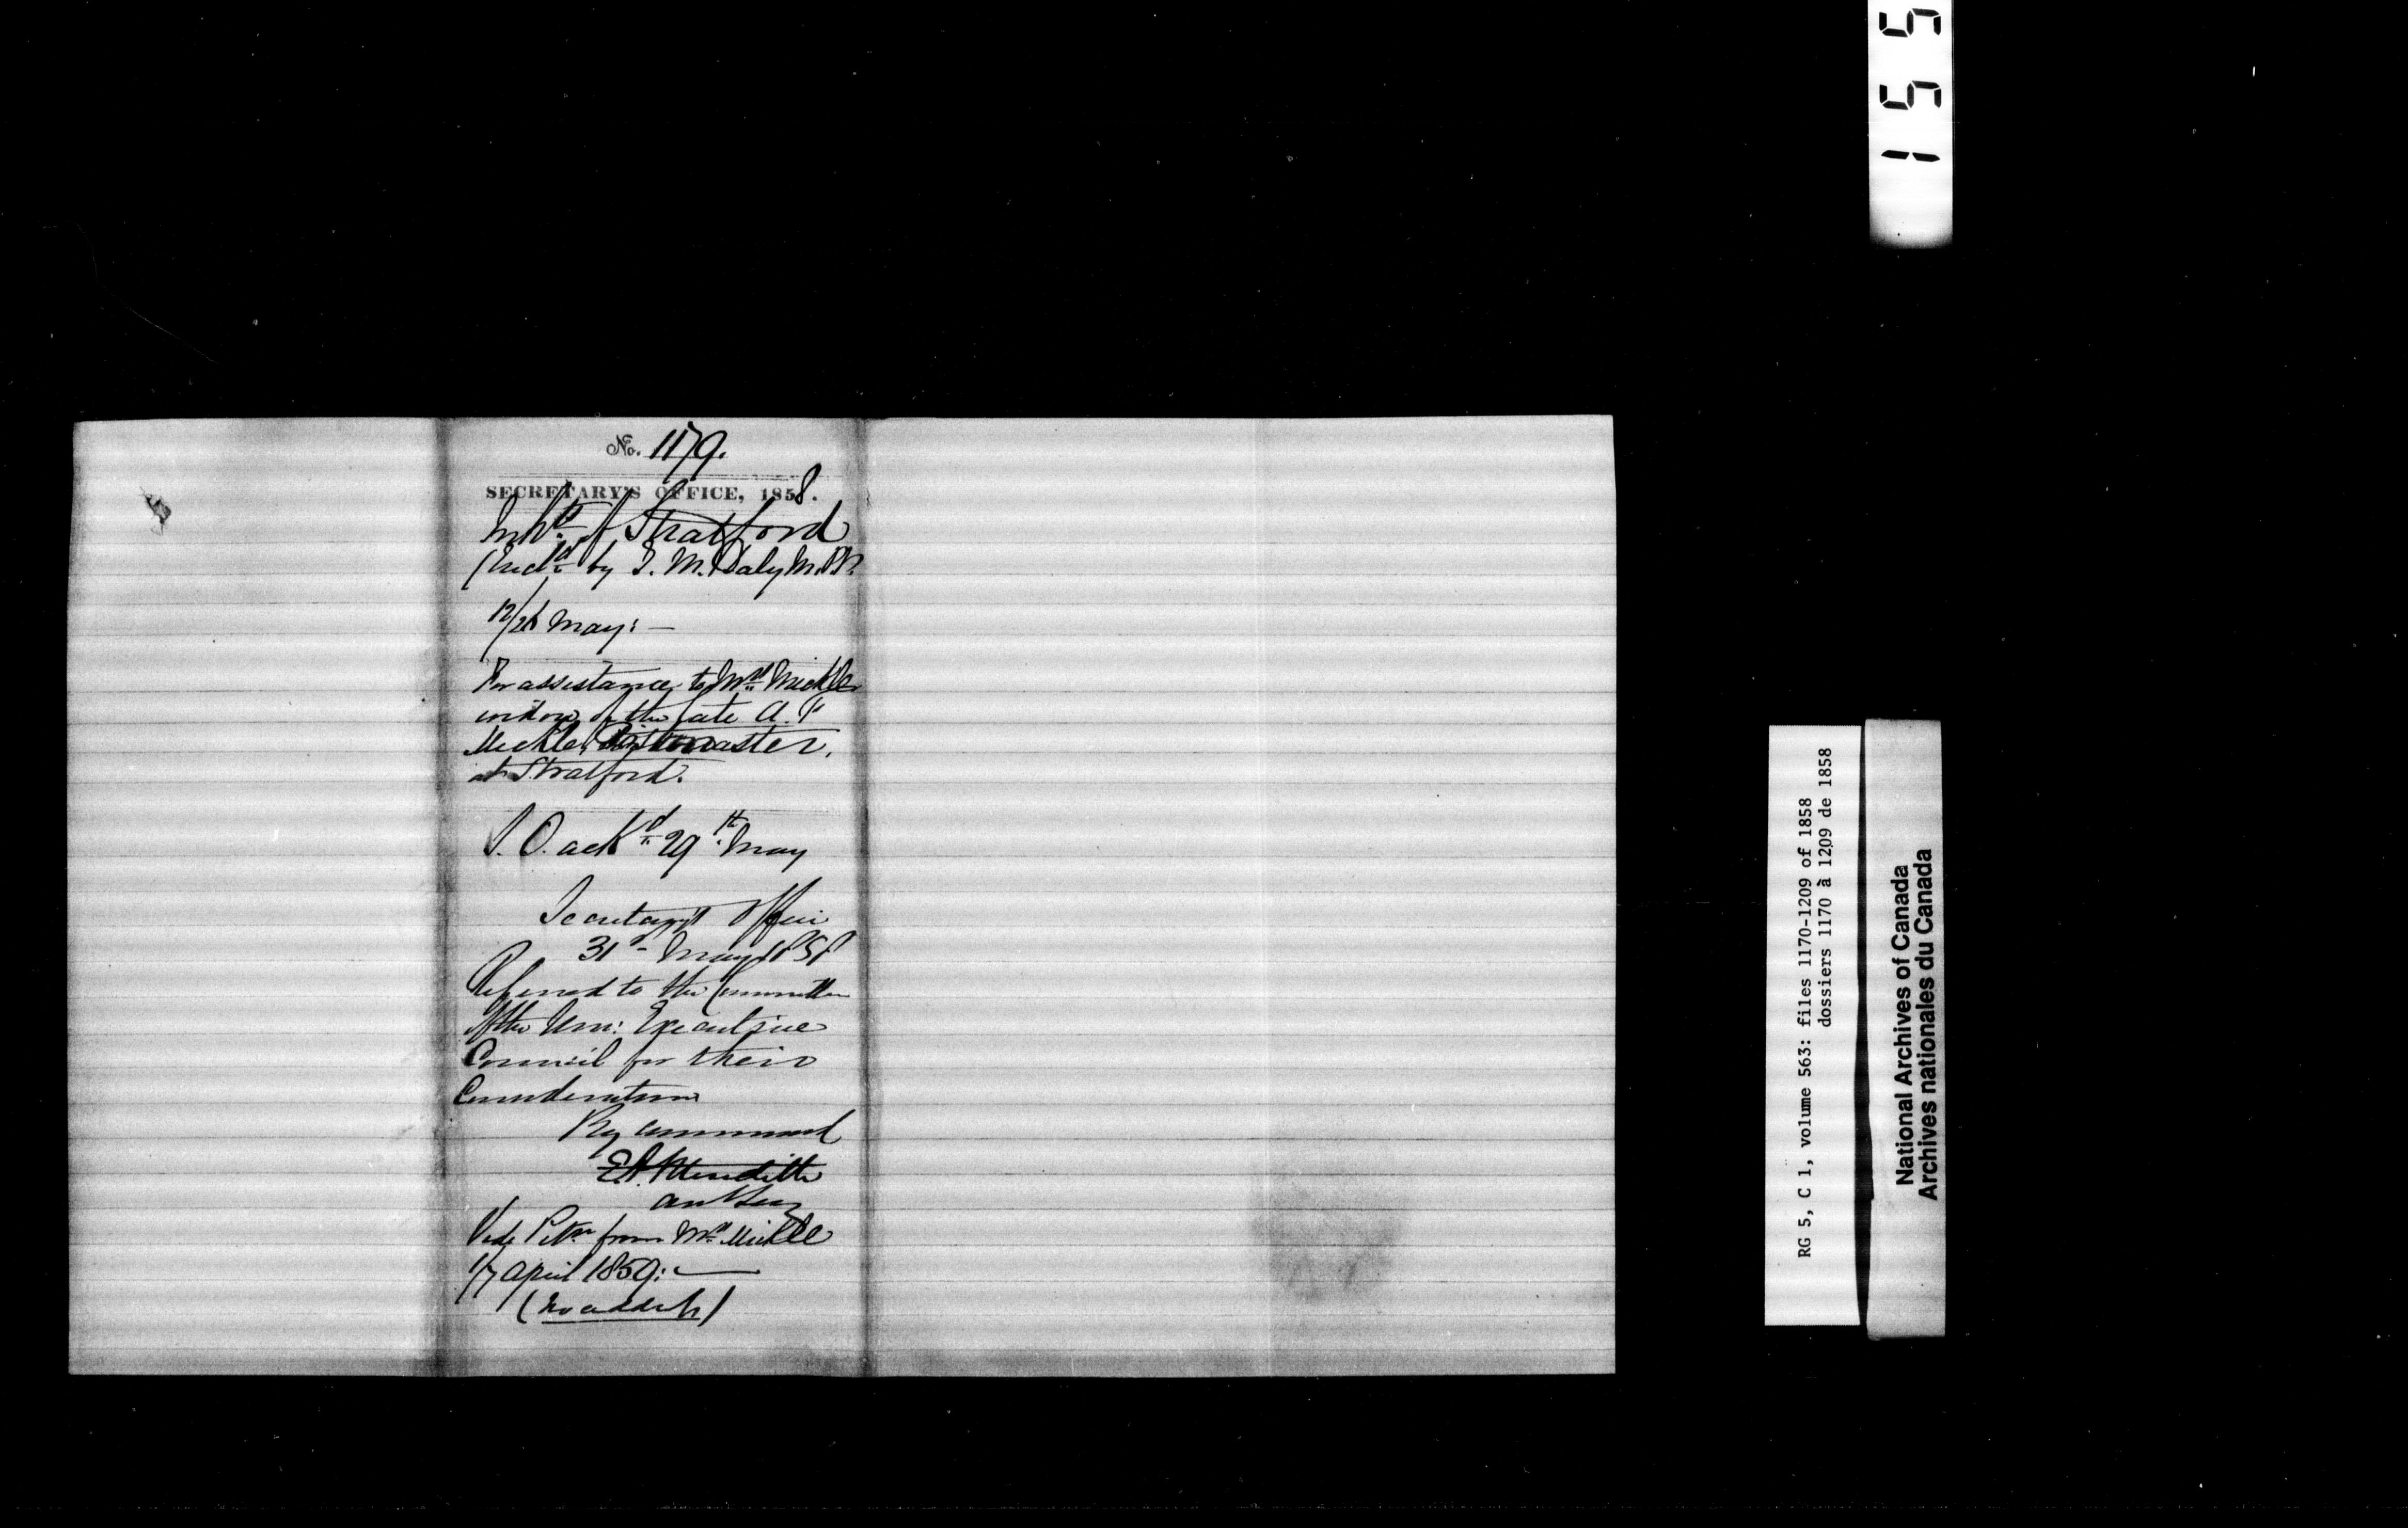 No. 1179.
SECRETARY'S OFFICE, 1858.
Inhts. of Stratford
(Encld. by T. M. Daly M.P.P.
12/28 May: —
For assistance to Mrs. Mickle
widow of the late A. F.
Mickle, Postmaster,
at Stratford.
P.O. ackd. 29th. May
Secretary's Office
31st May 1858
Referred to the Committee
of the Hon: Executive
Council for their
Consideration
By Command
E A. Meredith
Vide Petn. from Mrs. Mickle
17 April 1859: —
(No address)
155
RG 5, C 1, volume 563: files 1170-1209 of 1858
dossiers 1170 à 1209 de 1858
National Archives of Canada
Archives nationales du Canada